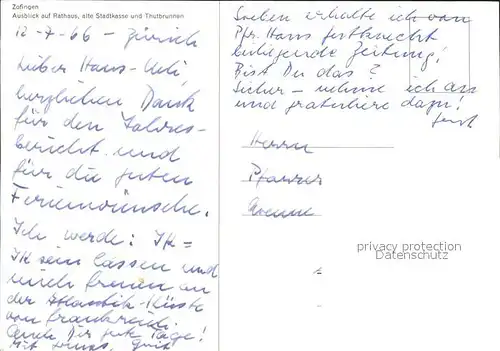 Zofingen
Ausblick auf Rathaus, alte Stadtkasse und Thutbrunnen
12-7-66 - Zürich
Lieber Hans-Ueli,
herzlichen Dank
für den Jahres-
bericht und
für die guten
Ferienwünsche.
Ich werde: JK =
JK sein lassen und
mich freuen an
der Atlantik-Küste
von Frankreich.
Auch Dir gute Tage!
Mit Gruss
Soeben erhalte ich von
Pfr. Hans
beiliegende Zeitung!
Bist Du das?
Sicher - nehme ich an
und gratuliere dazu!
Herrn
Pfarrer
privacy protection
Datenschutz